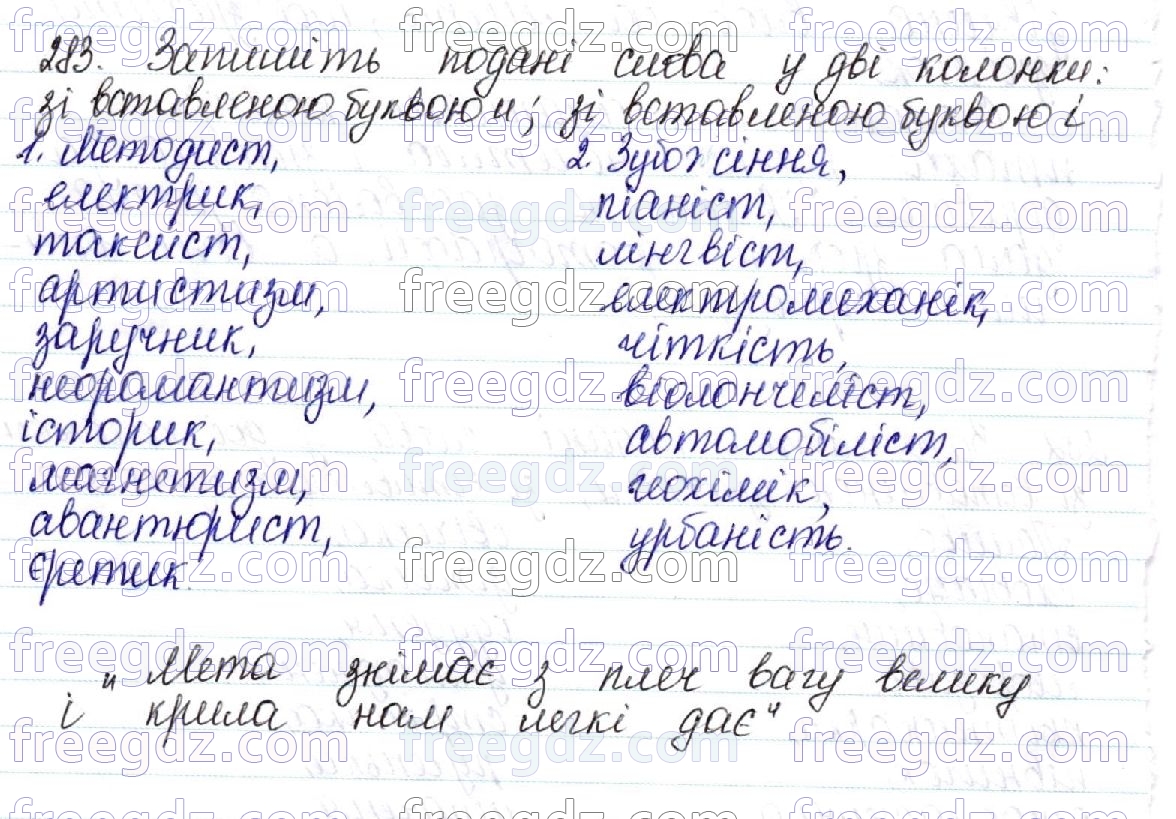 283. Запишіть подані слова у дві колонки:
зі вставленою буквою и; зі вставленою буквою і
1. Методист,
електрик,
таксист,
артистизм,
заручник,
неоромантизм,
історик,
магнетизм,
авантюрист,
єретик.
2. Зубожіння,
піаніст,
лінгвіст,
електромеханік,
чіткість,
віолончеліст,
автомобіліст,
геохімік,
урбаність.
„Мета знімає з плеч вагу велику
і крила нам легкі дає"
freegdz.com